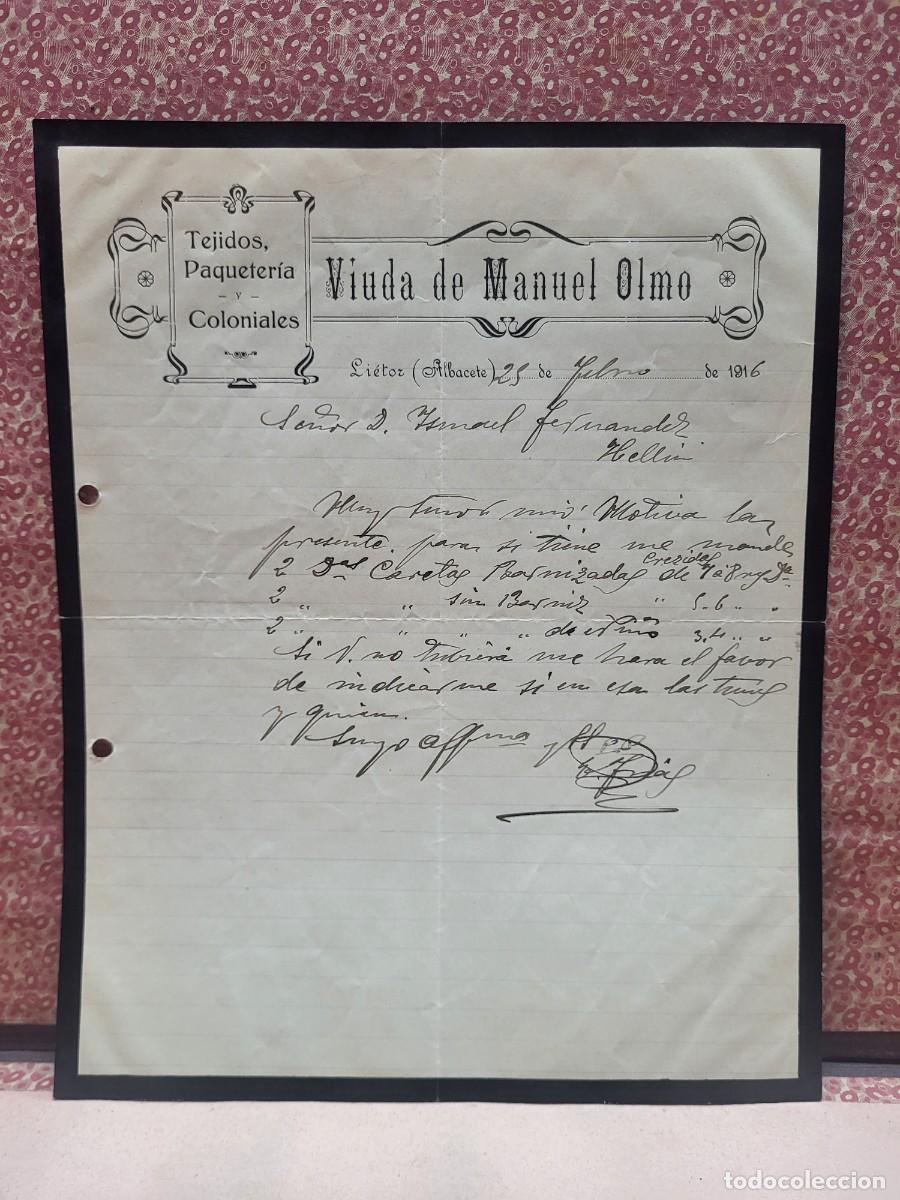 Tejidos,
Paquetería
- y -
Coloniales
Viuda de Manuel Olmo
Liétor (Albacete) 25 de Febro de 1916
Señor D. Ismael Fernandez
Hellin
Muy Señor mio: Motiva la
presente para si tiene me mande
crezidas
2 Das Caretas Barnizadas de 7 á 8 rs Da
2 " " sin Barniz " 5-6 " "
2 " " " " de niño 3,4 " "
Si V. no tubiera me hara el favor
de indicarme si en esa las tiene
y quien.
Suyo affmo
todocoleccion